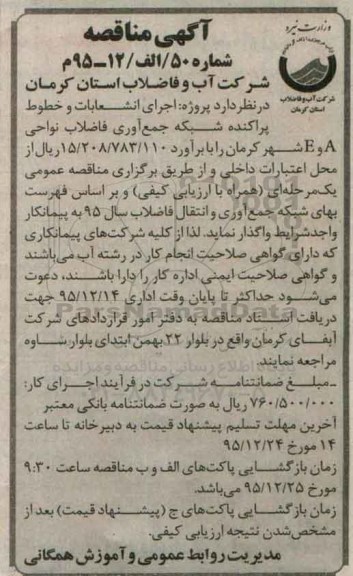 وزارت نیرو
شرکت آب و فاضلاب
استان کرمان
آگهی مناقصه
شماره ۵۰/الف/۱۲-۹۵م
شرکت آب و فاضلاب استان کرمان
درنظر دارد پروژه: اجرای انشعابات و خطوط
پراکنده شبکه جمع‌آوری فاضلاب نواحی
A و E شهر کرمان را با برآورد ۱۵/۲۰۸/۷۸۳/۱۱۰ ریال از
محل اعتبارات داخلی و از طریق برگزاری مناقصه عمومی
یک‌مرحله‌ای (همراه با ارزیابی کیفی) و بر اساس فهرست
بهای شبکه جمع آوری و انتقال فاضلاب سال ۹۵ به پیمانکار
واجدشرایط واگذار نماید. لذا از کلیه شرکت‌های پیمانکاری
که دارای گواهی صلاحیت انجام کار در رشته آب می‌باشند
و گواهی صلاحیت ایمنی اداره کار را دارا باشند، دعوت
می‌شود حداکثر تا پایان وقت اداری ۹۵/۱۲/۱۴ جهت
دریافت اسناد مناقصه به دفتر امور قراردادهای شرکت
آبفای کرمان واقع در بلوار ۲۲ بهمن ابتدای بلوار ساوه
مراجعه نمایند.
ـ مبلغ ضمانتنامه شرکت در فرآیند اجرای کار:
۷۶۰/۵۰۰/۰۰۰ ریال به صورت ضمانتنامه بانکی معتبر
آخرین مهلت تسلیم پیشنهاد قیمت به دبیرخانه تا ساعت
۱۴ مورخ ۹۵/۱۲/۲۴
زمان بازگشایی پاکت‌های الف و ب مناقصه ساعت ۹:۳۰
مورخ ۹۵/۱۲/۲۵ می‌باشد.
زمان بازگشایی پاکت‌های ج (پیشنهاد قیمت) بعد از
مشخص‌شدن نتیجه ارزیابی کیفی.
مدیریت روابط عمومی و آموزش همگانی